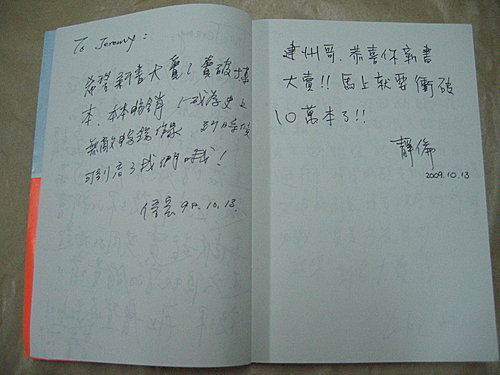 To Jeremy:
希望新書大賣！賣破十萬
本、本本暢銷！成為史上
無敵
到時候
可別忘了我們哦！
98.10.13.
建州哥、恭喜你新書
大賣!! 馬上就要衝破
10萬本了!!
靜倫
2009.10.13